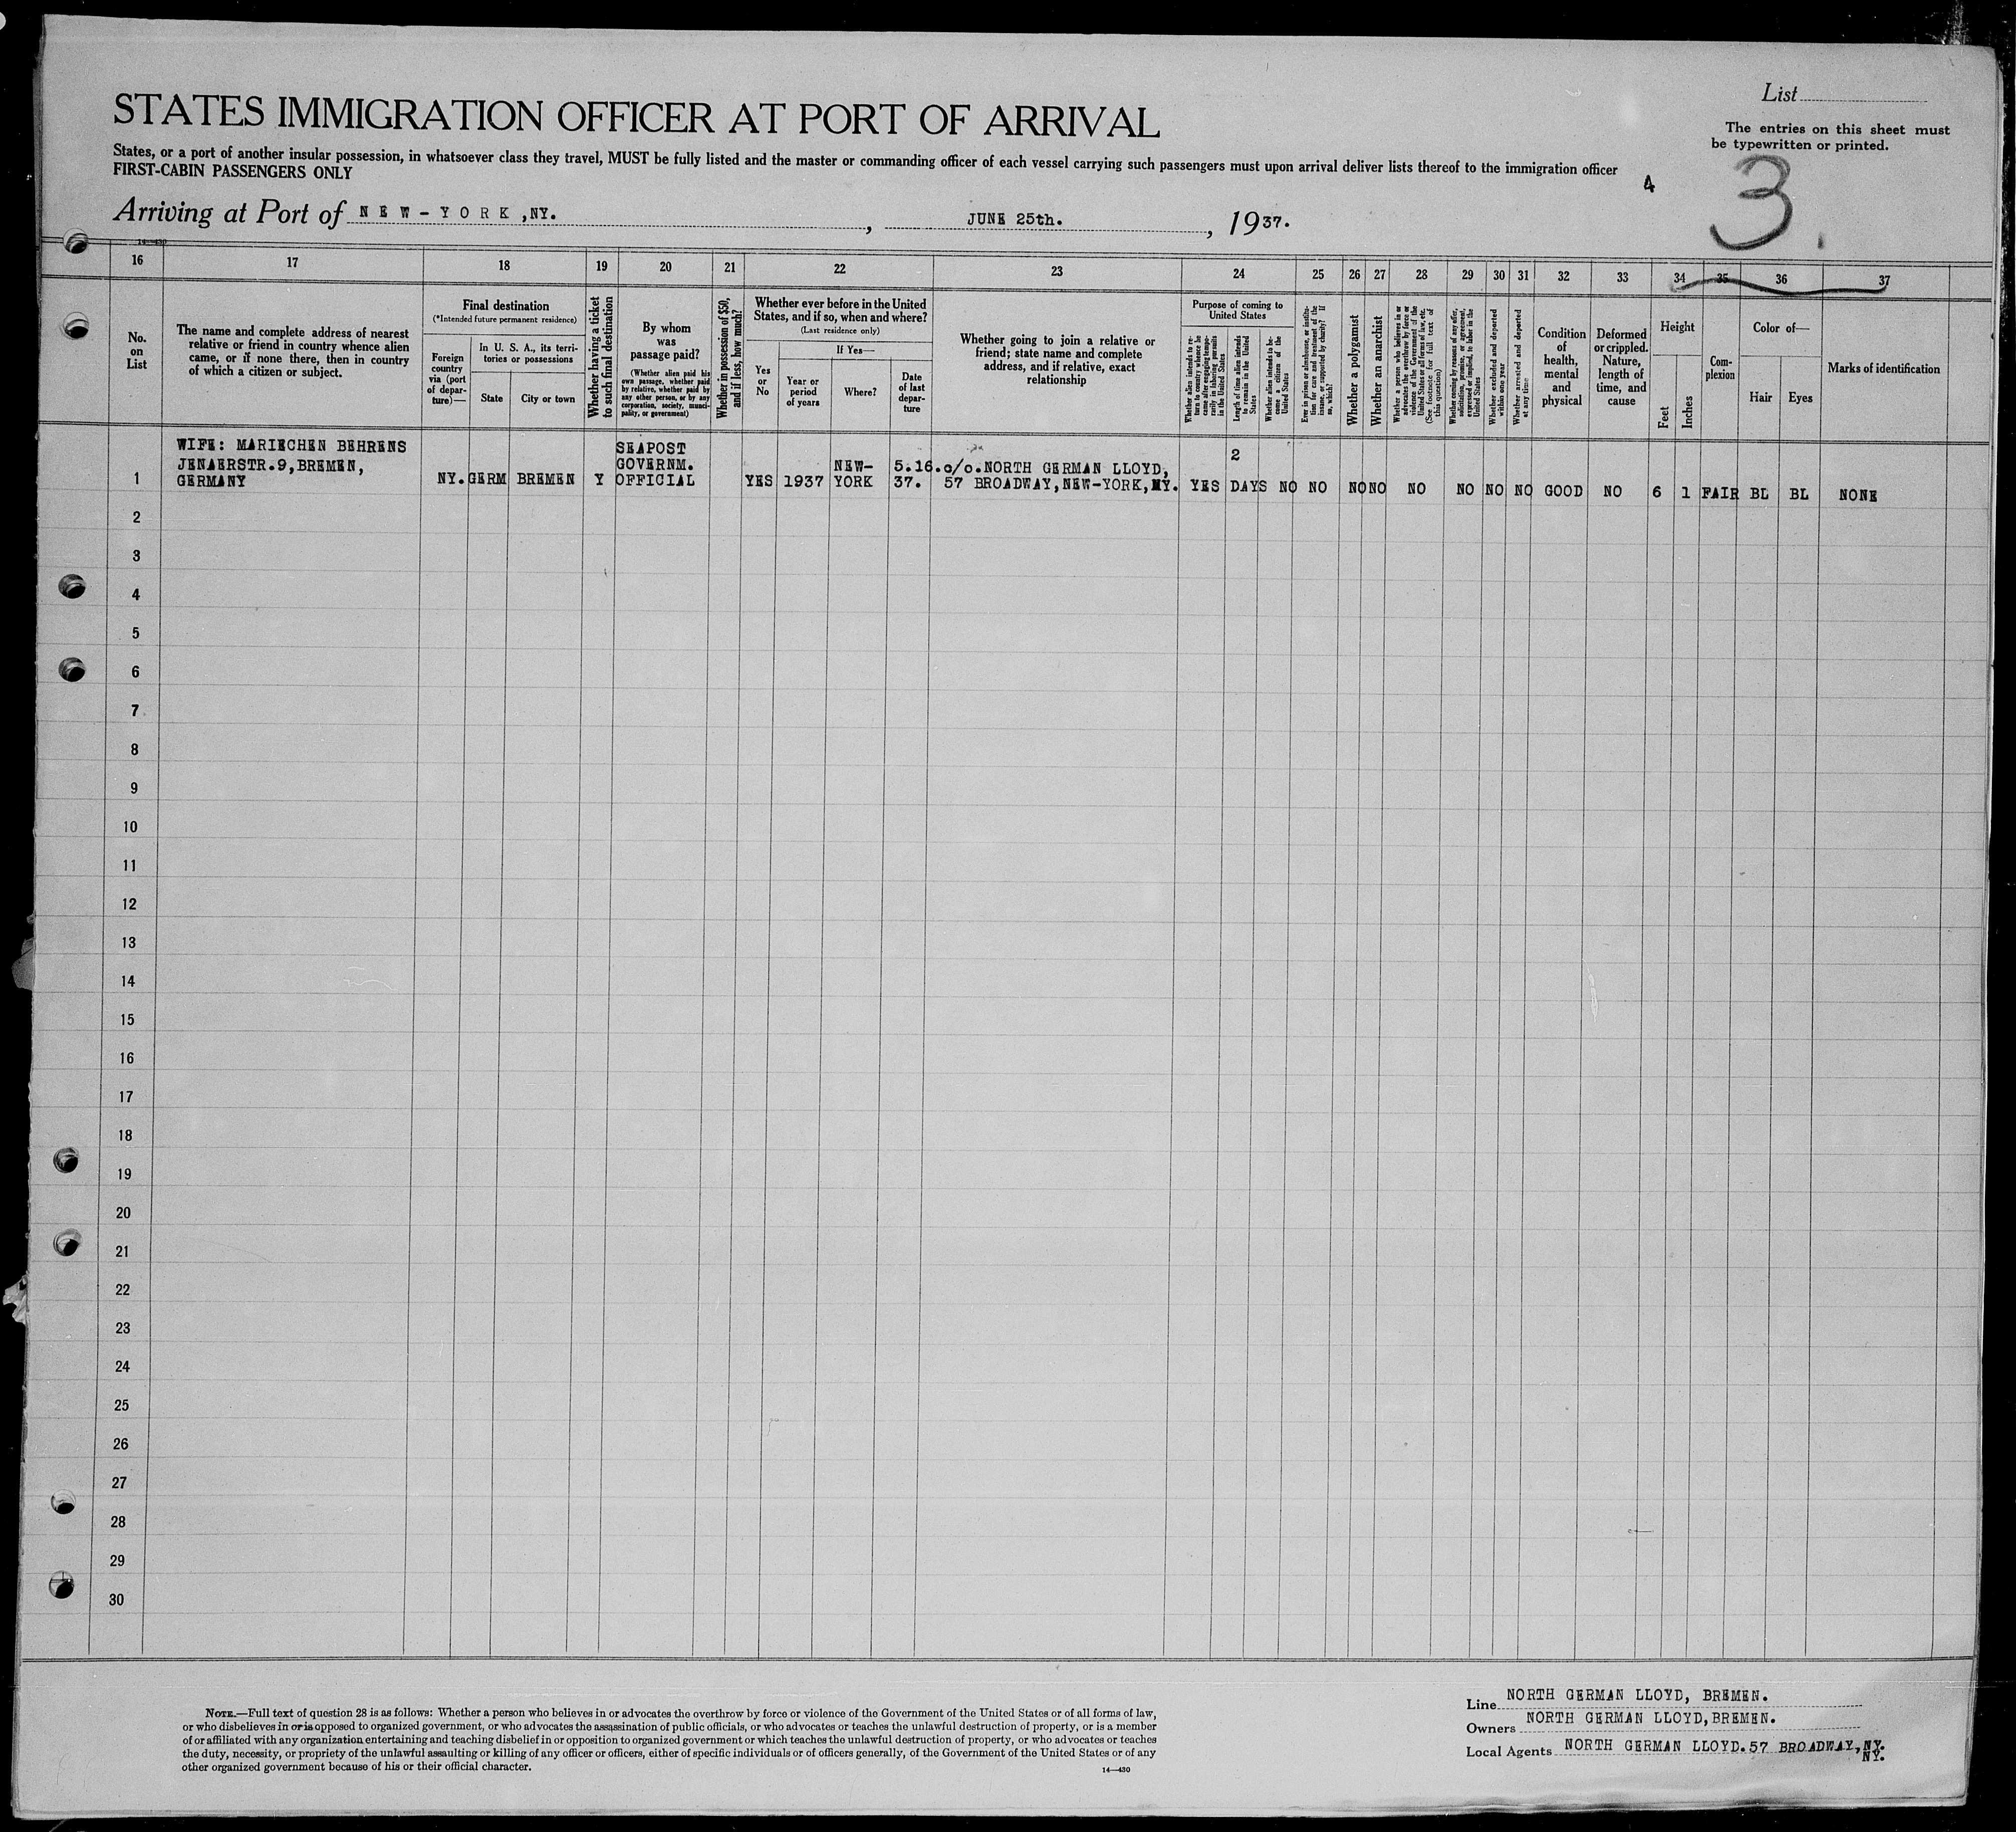 List
STATES IMMIGRATION OFFICER AT PORT OF ARRIVAL
The entries on this sheet must
be typewritten or printed.
States, or a port of another insular possession, in whatsoever class they travel, MUST be fully listed and the master or commanding officer of each vessel carrying such passengers must upon arrival deliver lists thereof to the immigration officer
FIRST-CABIN PASSENGERS ONLY
4
3
Arriving at Port of NEW-YORK,NY. , JUNE 25th. , 1937.
14—430
16 17 18 19 20 21 22 23 24 25 26 27 28 29 30 31 32 33 34 35 36 37
No.
on
List
The name and complete address of nearest
relative or friend in country whence alien
came, or if none there, then in country
of which a citizen or subject.
Final destination
(*Intended future permanent residence)
Foreign
country
via (port
of depar-
ture)—
In U. S. A., its terri-
tories or possessions
State
City or town
Whether having a ticket
to such final destination
By whom
was
passage paid?
(Whether alien paid his
own passage, whether paid
by relative, whether paid by
any other person, or by any
corporation, society, munici-
pality, or government)
Whether in possession of $50,
and if less, how much?
Whether ever before in the United
States, and if so, when and where?
(Last residence only)
Yes
or
No
If Yes—
Year or
period
of years
Where?
Date
of last
depar-
ture
Whether going to join a relative or
friend; state name and complete
address, and if relative, exact
relationship
Purpose of coming to
United States
Whether alien intends to re-
turn to country whence he
came after engaging tempo-
rarily in laboring pursuits
in the United States
Length of time alien intends
to remain in the United
States
Whether alien intends to be-
come a citizen of the
United States
Ever in prison or almshouse, or institu-
tion for care and treatment of the
insane, or supported by charity? If
so, which?
Whether a polygamist
Whether an anarchist
Whether a person who believes in or
advocates the overthrow by force or
violence of the Government of the
United States or all forms of law, etc.
(See footnote for full text of
this question)
Whether coming by reasons of any offer,
solicitation, promise, or agreement,
expressed or implied, to labor in the
United States
Whether excluded and deported
within one year
Whether arrested and deported
at any time
Condition
of
health,
mental
and
physical
Deformed
or crippled.
Nature,
length of
time, and
cause
Height
Feet
Inches
Com-
plexion
Color of—
Hair
Eyes
Marks of identification
WIFE: MARIECHEN BEHRENS
JENAERSTR.9,BREMEN,
GERMANY
1
NY. GERM BREMEN Y
SEAPOST
GOVERNM.
OFFICIAL
YES 1937
NEW-
YORK
5.16.
37.
c/o.NORTH GERMAN LLOYD,
57 BROADWAY,NEW-YORK,NY.
YES
2
DAYS
NO NO NO NO NO NO NO NO GOOD NO 6 1 FAIR BL BL NONE
2
3
4
5
6
7
8
9
10
11
12
13
14
15
16
17
18
19
20
21
22
23
24
25
26
27
28
29
30
NOTE.—Full text of question 28 is as follows: Whether a person who believes in or advocates the overthrow by force or violence of the Government of the United States or of all forms of law,
or who disbelieves in or is opposed to organized government, or who advocates the assassination of public officials, or who advocates or teaches the unlawful destruction of property, or is a member
of or affiliated with any organization entertaining and teaching disbelief in or opposition to organized government or which teaches the unlawful destruction of property, or who advocates or teaches
the duty, necessity, or propriety of the unlawful assaulting or killing of any officer or officers, either of specific individuals or of officers generally, of the Government of the United States or of any
other organized government because of his or their official character.
14—430
Line NORTH GERMAN LLOYD, BREMEN.
Owners NORTH GERMAN LLOYD,BREMEN.
Local Agents NORTH GERMAN LLOYD.57 BROADWAY,NY.
NY.